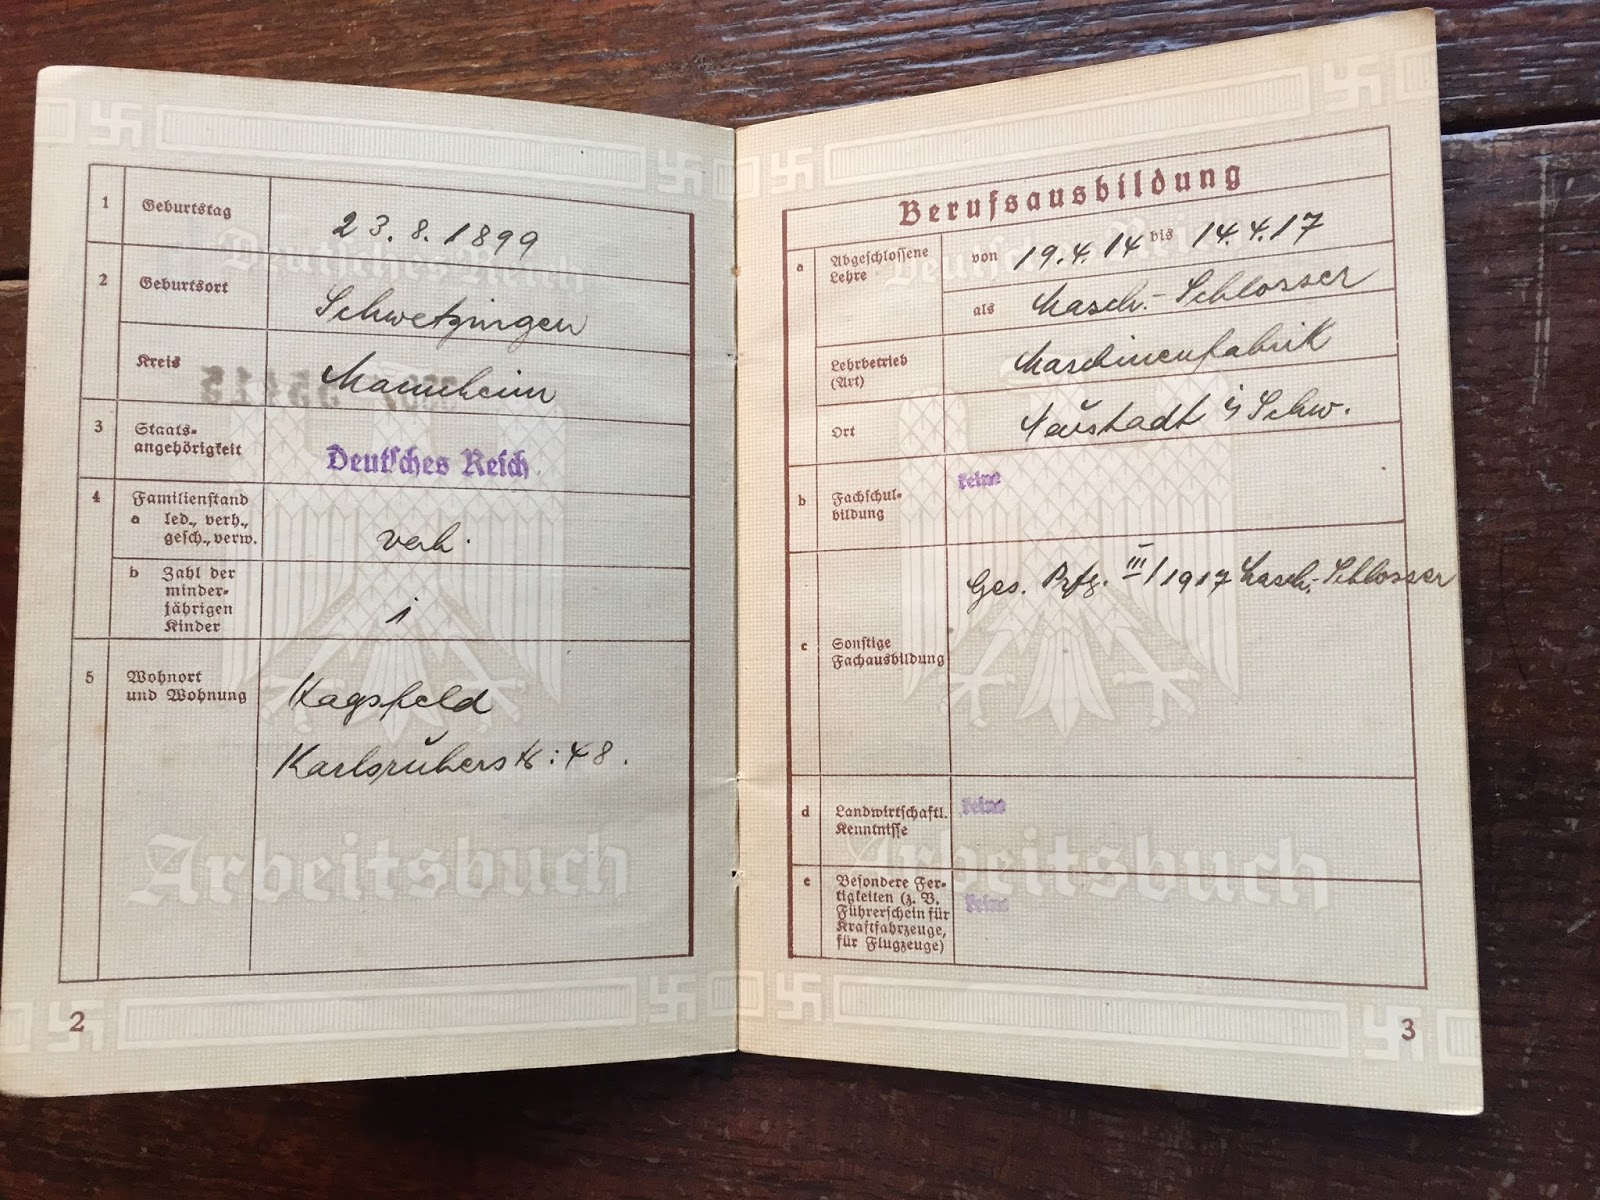 1 Geburtstag 23.8.1899
2 Geburtsort Schwetzingen
Kreis Mannheim
3 Staats-
angehörigkeit Deutsches Reich
4 Familienstand
a led., verh.,
gesch., verw. verh.
b Zahl der
minder-
jährigen
Kinder 1
5 Wohnort
und Wohnung Hagsfeld
Karlsruherstr: 48.
Deutsches Reich
Arbeitsbuch
2
Berufsausbildung
a Abgeschlossene
Lehre von 19.4.14 bis 14.4.17
als Masch.-Schlosser
Lehrbetrieb
(Art) Maschinenfabrik
Ort Neustadt i/Schw.
b Fachschul-
bildung keine
c Sonstige
Fachausbildung Ges. Prfg. III/1917 Masch.-Schlosser
d Landwirtschaftl.
Kenntnisse keine
e Besondere Fer-
tigkeiten (z. B.
Führerschein für
Kraftfahrzeuge,
für Flugzeuge) keine
Deutsches Reich
Arbeitsbuch
3